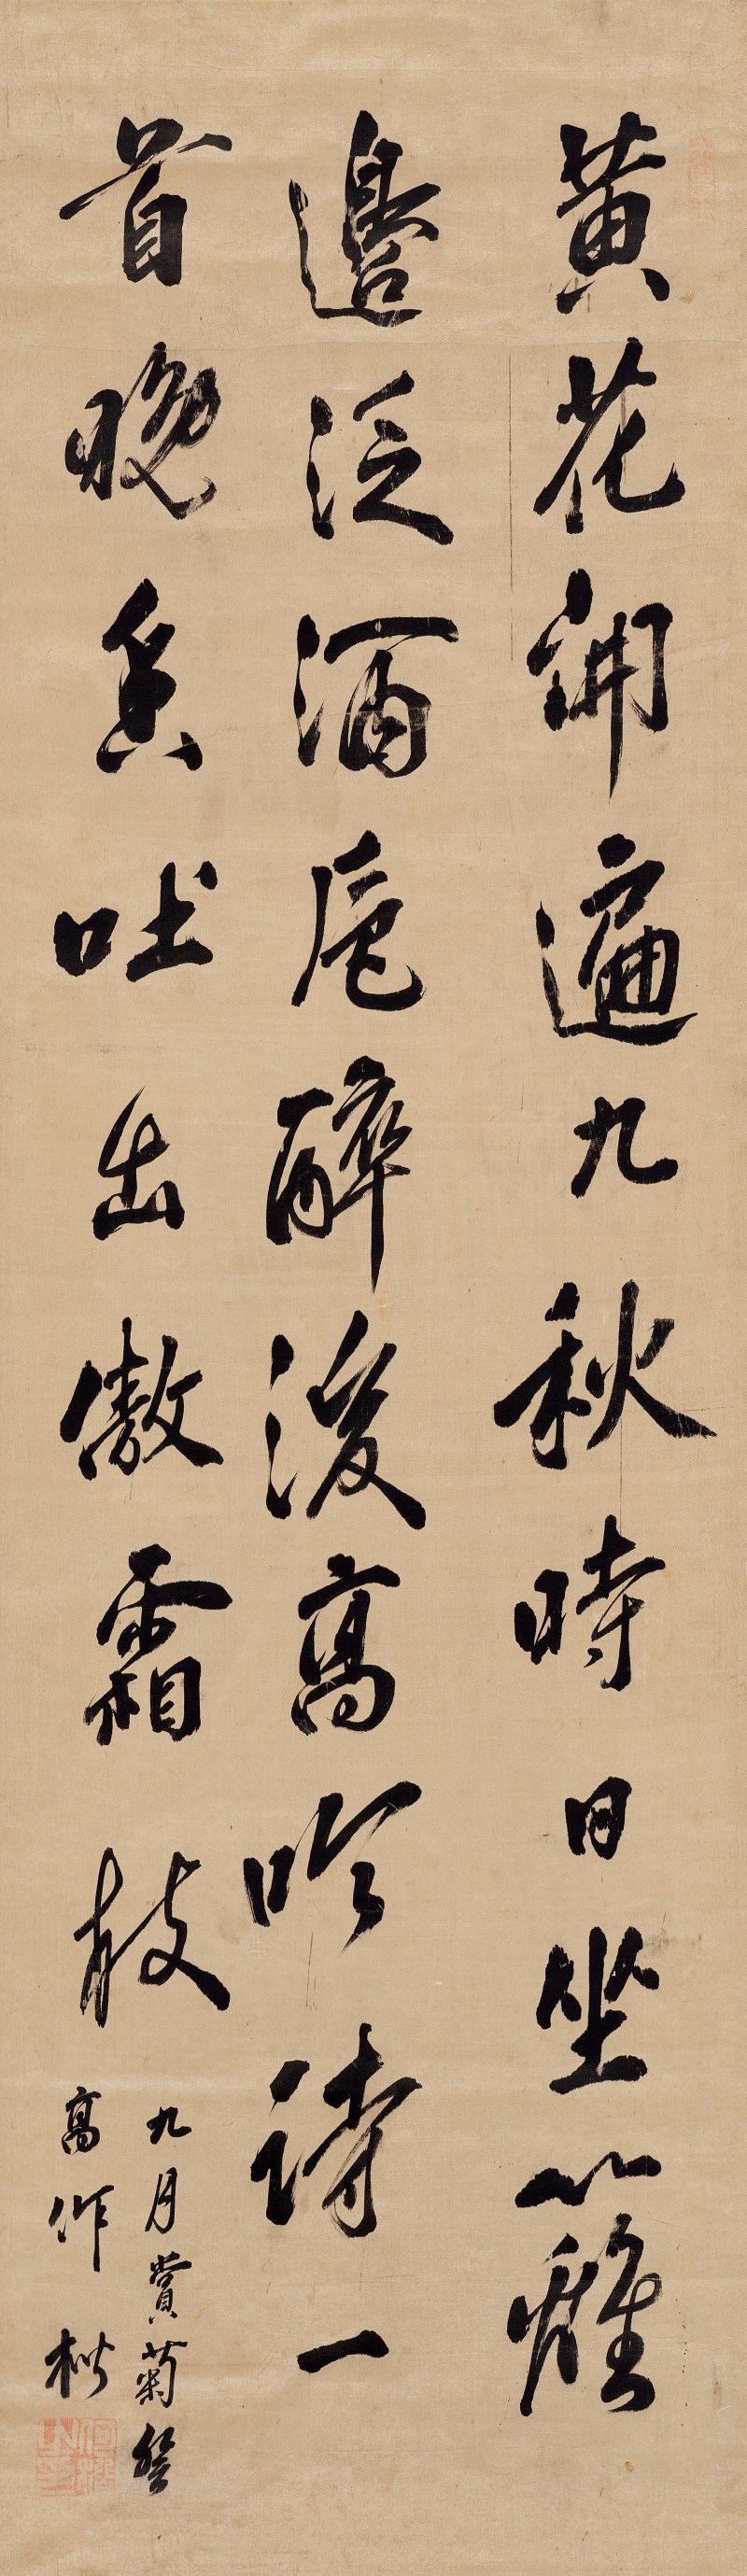 黄花開遍九秋時日坐籬
邊泛酒卮醉後高吟詩一
首晚香吐出傲霜枝
九月賞菊登
高作